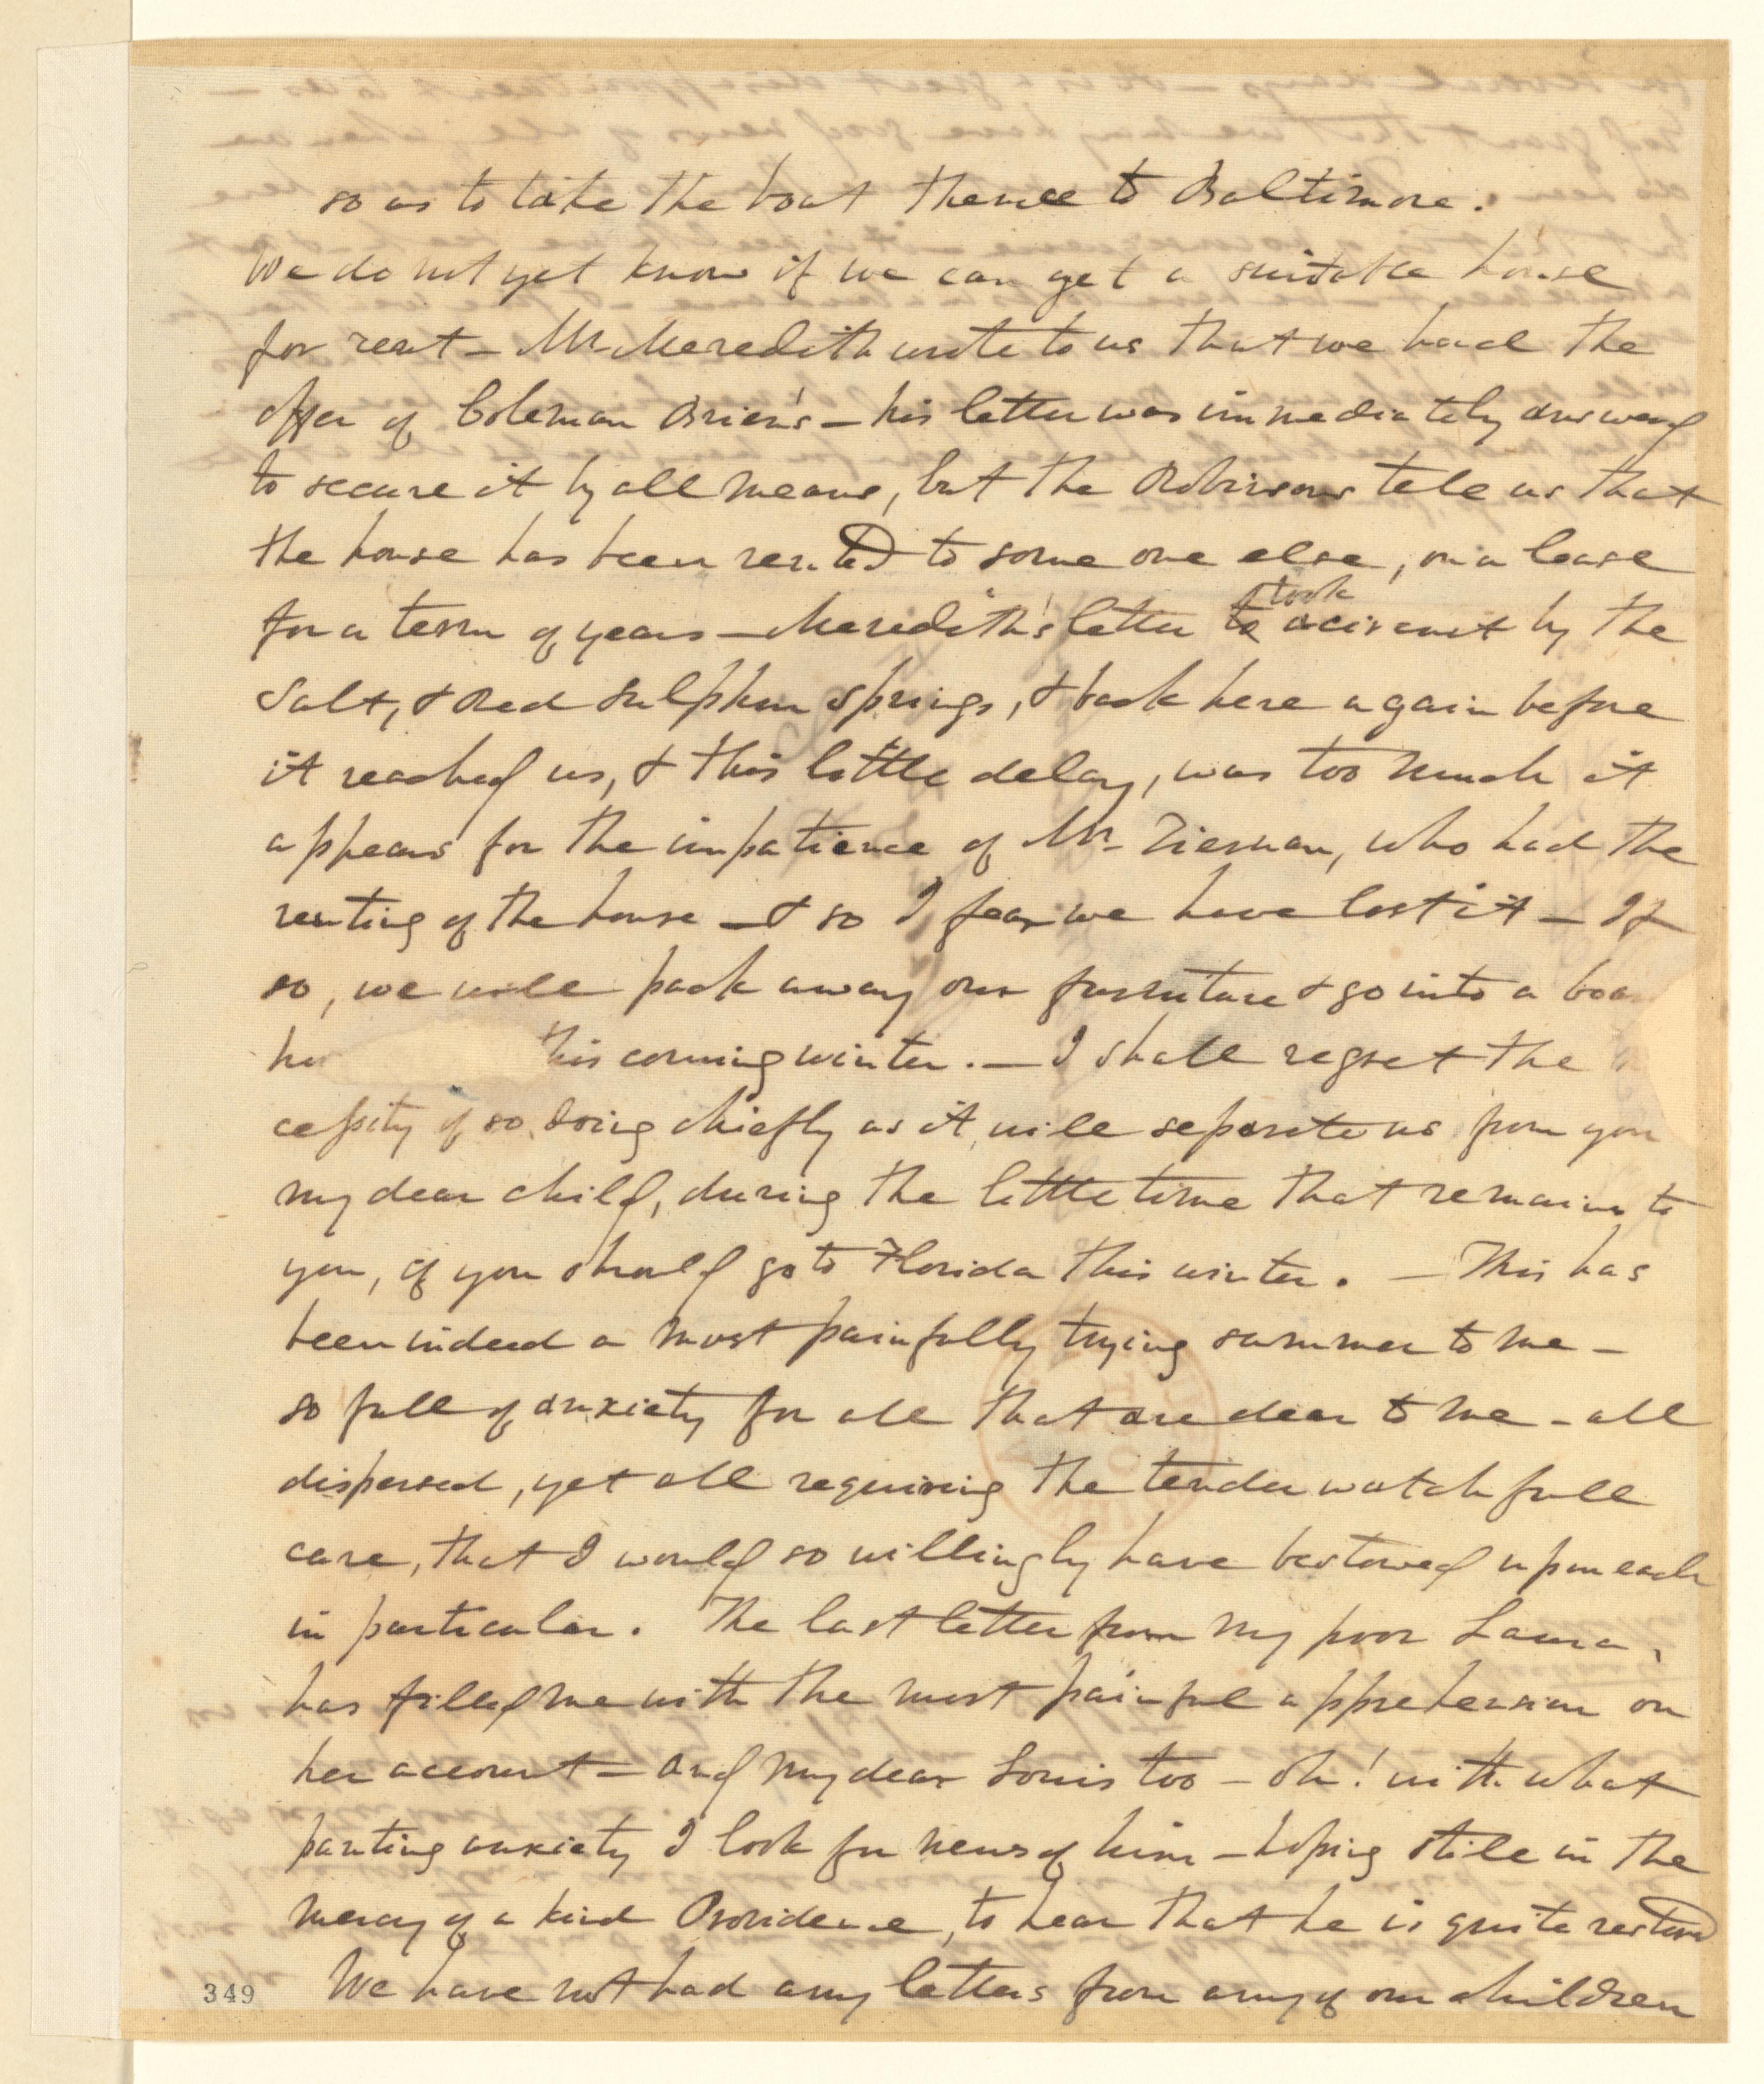 so as to take the boat thence to Baltimore.
We do not yet know if we can get a suitable house
for rent – Mr. Meredith wrote to us that we had the
offer of Coleman Brien's – his letter was immediately answered
to secure it by all means, but the Robinsons tell us that
the house has been rented to some one else, on a lease
for a term of years – Meredith's letter took a circuit by the
Salt, & Red Sulphur Springs, & back here again before
it reached us, & this little delay, was too much it
appears for the impatience of Mr. Tiernan, who had the
renting of the house – & so I fear we have lost it – If
so, we will pack away our furniture & go into a boar
hou this coming winter. – I shall regret the
cessity of so doing chiefly as it will separate us from you
my dear child, during the little time that remains to
you, if you should go to Florida this winter. – This has
been indeed a most painfully trying summer to me –
so full of anxiety for all that are dear to me – all
dispersed, yet all requiring the tender watchfull
care, that I would so willingly have bestowed upon each
in particular. The last letter from my poor Laura,
has filled me with the most painful apprehension on
her account – and my dear Louis too – oh! with what
panting anxiety I look for news of him – hoping still in the
mercy of a kind Providence, to hear that he is quite restored
349 We have not had any letters from any of our children